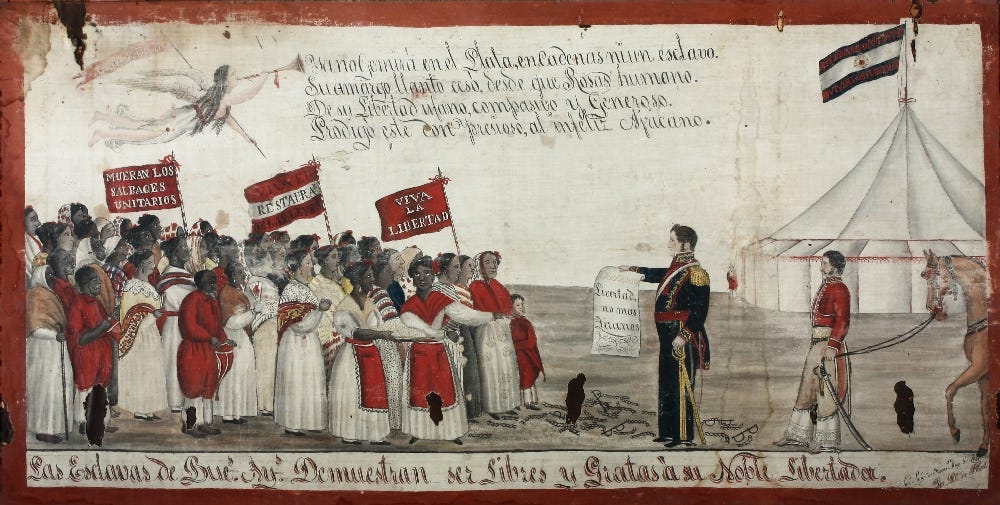 Ya no gemirá en el Plata, en cadenas ni un esclavo.
Su amargo llanto cesó, desde que Rosas humano.
De su Libertad ufano, compasivo y Generoso.
Prodigo este don precioso, al infeliz Africano.
MUERAN LOS
SALBAGES
UNITARIOS
VIVA EL
RESTAURA
DE LAS LEYES
VIVA
LA
LIBERTAD
Libertad.
no mas
Tiranos
Las Esclavas de Bue.ˢ Ay.ˢ Demuestran ser Libres y Gratas à su Noble Libertador.